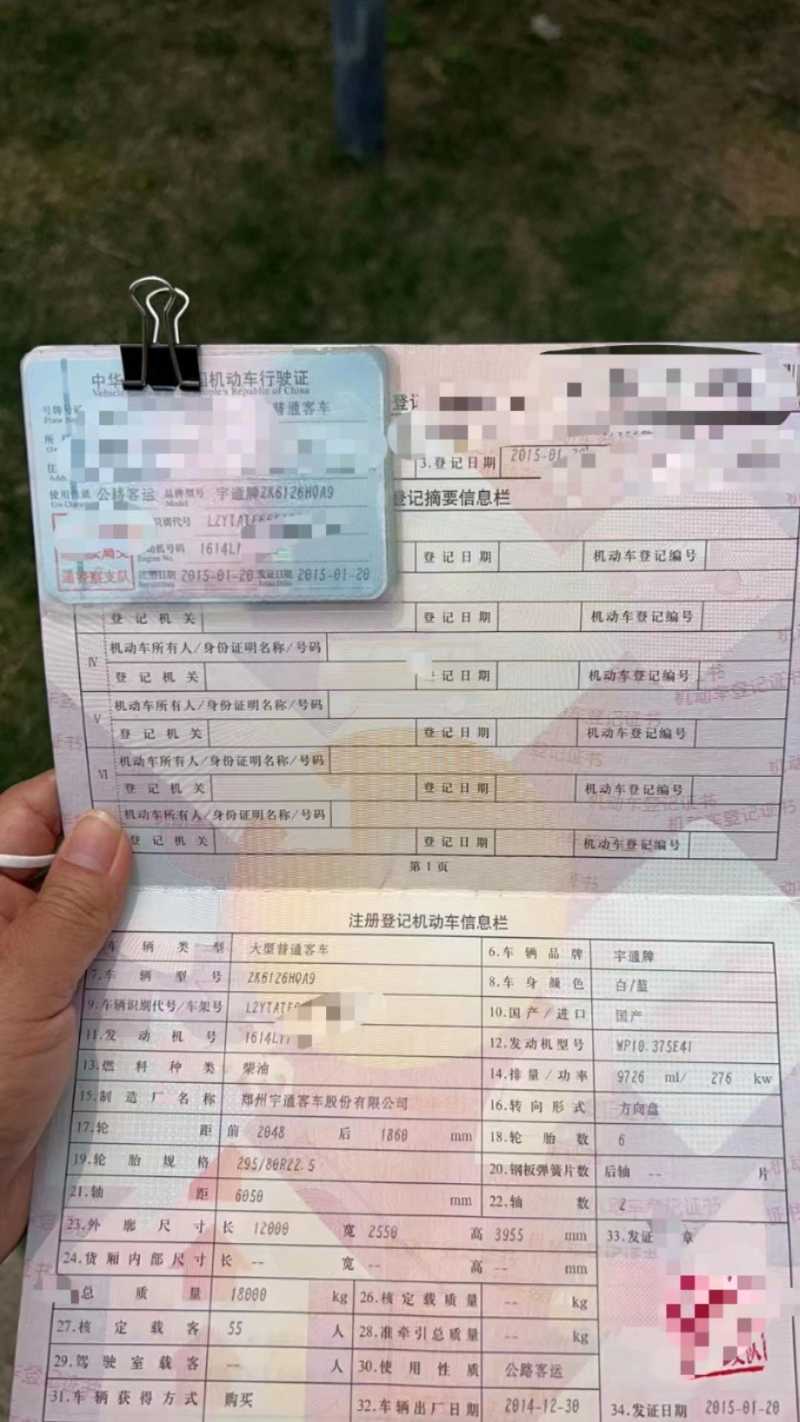 中华 国机动车行驶证
Vehicle People's Republic of China
号牌号码 普通客车
所
住
使用性质 公路客运 品牌型号 宇通牌ZK6126HQA9
识别代号 LZYTATF
发动机号码 1614L
通警察支队 注册日期 2015-01-20 发证日期 2015-01-20
登记
3.登记日期 2015-01-20
登记摘要信息栏
登记日期 机动车登记编号
登记机关 登记日期 机动车登记编号
Ⅳ 机动车所有人/身份证明名称/号码
登记机关 登记日期 机动车登记编号
Ⅴ 机动车所有人/身份证明名称/号码
登记机关 登记日期 机动车登记编号
Ⅵ 机动车所有人/身份证明名称/号码
登记机关 登记日期 机动车登记编号
机动车所有人/身份证明名称/号码
登记机关 登记日期 机动车登记编号
第1页
注册登记机动车信息栏
车辆类型 大型普通客车 6.车辆品牌 宇通牌
7.车辆型号 ZK6126HQA9 8.车身颜色 白/蓝
9.车辆识别代号/车架号 LZYTATF 10.国产/进口 国产
11.发动机号 1614L 12.发动机型号 WP10.375E41
13.燃料种类 柴油 14.排量/功率 9726 ml/ 276 kw
15.制造厂名称 郑州宇通客车股份有限公司 16.转向形式 方向盘
17.轮距 前 2048 后 1860 mm 18.轮胎数 6
19.轮胎规格 295/80R22.5 20.钢板弹簧片数 后轴 -- 片
21.轴距 6050 mm 22.轴数 2
23.外廓尺寸 长 12000 宽 2550 高 3955 mm 33.发证 章
24.货厢内部尺寸 长 -- 宽 -- 高 -- mm
总质量 18000 kg 26.核定载质量 -- kg
27.核定载客 55 人 28.准牵引总质量 -- kg
29.驾驶室载客 -- 人 30.使用性质 公路客运
31.车辆获得方式 购买 32.车辆出厂日期 2014-12-30 34.发证日期 2015-01-20